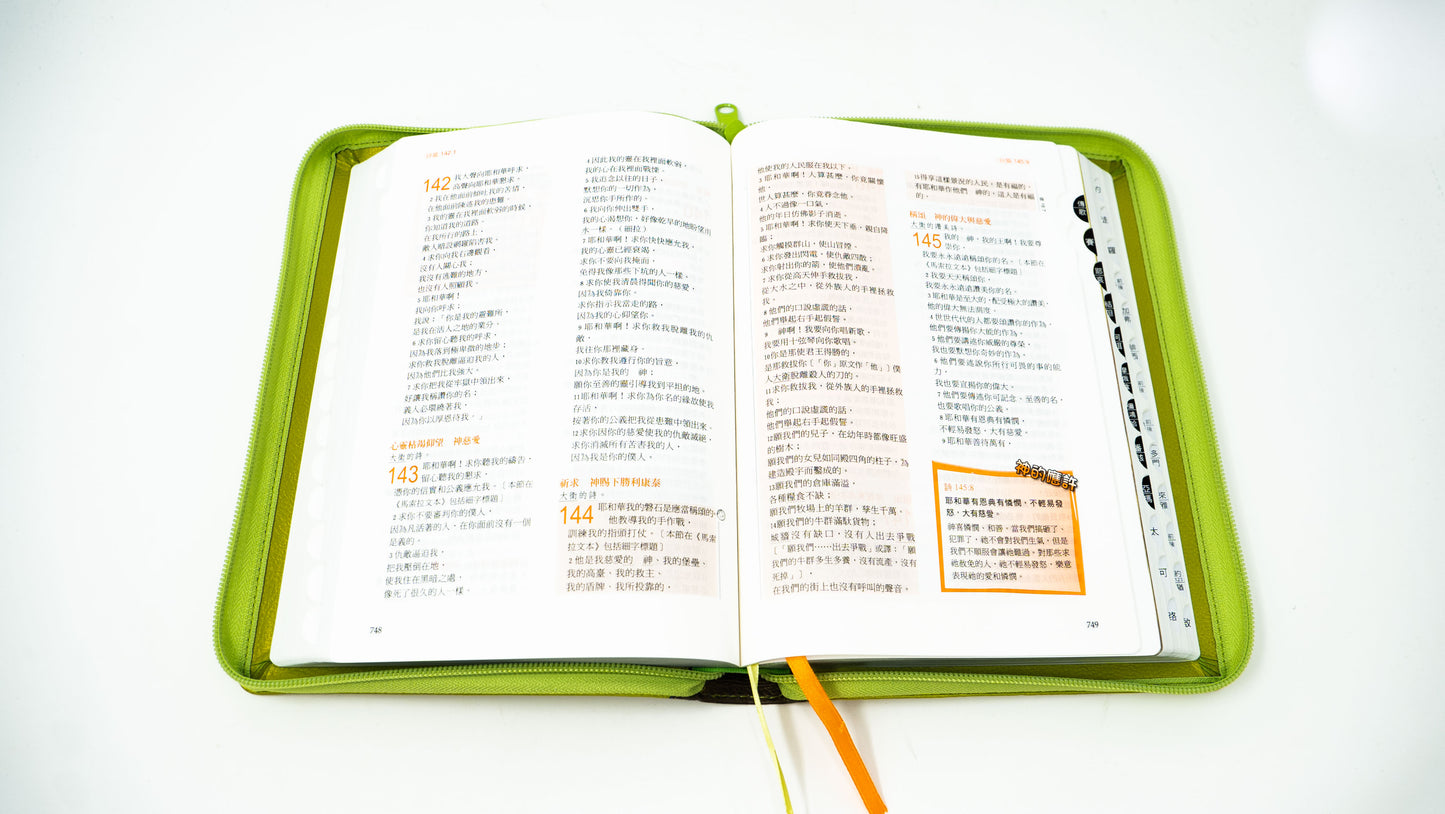 詩篇 142:1
142 我大聲向耶和華呼求，
高聲向耶和華懇求。
2 我在他面前傾吐我的苦情，
在他面前陳述我的患難。
3 我的靈在我裡面軟弱的時候，
你知道我的道路。
在我所行的路上，
敵人暗設網羅陷害我。
4 求你向我右邊觀看，
沒有人關心我；
我沒有逃難的地方，
也沒有人照顧我。
5 耶和華啊！
我向你呼求，
我說：「你是我的避難所，
是我在活人之地的業分。
6 求你留心聽我的呼求，
因為我落到極卑微的地步；
求你救我脫離逼迫我的人，
因為他們比我強大。
7 求你把我從牢獄中領出來，
好讓我稱讚你的名；
義人必環繞著我，
因為你以厚恩待我。」
心靈枯竭仰望　神慈愛
大衛的詩。
143 耶和華啊！求你聽我的禱告，
留心聽我的懇求，
憑你的信實和公義應允我。〔本節在
《馬索拉文本》包括細字標題〕
2 求你不要審判你的僕人，
因為凡活著的人，在你面前沒有一個
是義的。
3 仇敵逼迫我，
把我壓倒在地，
使我住在黑暗之處，
像死了很久的人一樣。
748
4 因此我的靈在我裡面軟弱，
我的心在我裡面戰慄。
5 我追念以往的日子，
默想你的一切作為，
沉思你手所作的。
6 我向你伸出雙手，
我的心渴想你，好像乾旱的地盼望雨
水一樣。（細拉）
7 耶和華啊！求你快快應允我，
我的心靈已經衰竭。
求你不要向我掩面，
免得我像那些下坑的人一樣。
8 求你使我清晨得聞你的慈愛，
因為我倚靠你。
求你指示我當走的路，
因為我的心仰望你。
9 耶和華啊！求你救我脫離我的仇
敵，
我往你那裡藏身。
10 求你教我遵行你的旨意，
因為你是我的　神。
願你至善的靈引導我到平坦的地。
11 耶和華啊！求你為你名的緣故使我
存活，
按著你的公義把我從患難中領出來。
12 求你因你的慈愛使我的仇敵滅絕，
求你消滅所有苦害我的人，
因為我是你的僕人。
祈求　神賜下勝利康泰
大衛的詩。
144 耶和華我的磐石是應當稱頌的，
他教導我的手作戰，
訓練我的指頭打仗。〔本節在《馬索
拉文本》包括細字標題〕
2 他是我慈愛的　神，我的堡壘，
我的高臺、我的救主、
我的盾牌、我所投靠的，
他使我的人民服在我以下。
3 耶和華啊！人算甚麼，你竟關懷
他，
世人算甚麼，你竟眷念他。
4 人不過像一口氣，
他的年日仿佛影子消逝。
5 耶和華啊！求你使天下垂，親自降
臨；
求你觸摸群山，使山冒煙。
6 求你發出閃電，使仇敵四散；
求你射出你的箭，使他們潰亂。
7 求你從高天伸手救拔我，
從大水之中，從外族人的手裡拯救
我。
8 他們的口說虛謊的話，
他們舉起右手起假誓。
9　神啊！我要向你唱新歌，
我要用十弦琴向你歌唱。
10 你是那使君王得勝的，
是那救拔你〔「你」原文作「他」〕僕
人大衛脫離殺人的刀的。
11 求你救拔我，從外族人的手裡拯救
我；
他們的口說虛謊的話，
他們舉起右手起假誓。
12 願我們的兒子，在幼年時都像旺盛
的樹木；
願我們的女兒如同殿四角的柱子，為
建造殿宇而鑿成的。
13 願我們的倉庫滿溢，
各種糧食不缺；
願我們牧場上的羊群，孳生千萬。
14 願我們的牛群滿馱貨物；
城牆沒有缺口，沒有人出去爭戰
〔「願我們……出去爭戰」或譯：「願
我們的牛群多生多養，沒有流產，沒有
死掉」〕，
在我們的街上也沒有呼叫的聲音。
詩篇 145:9
15 得享這樣景況的人民，是有福的，
有耶和華作他們　神的，這人是有福
的。
稱頌　神的偉大與慈愛
大衛的讚美詩。
145 我的　神，我的王啊！我要尊
崇你，
我要永永遠遠稱頌你的名。〔本節在
《馬索拉文本》包括細字標題〕
2 我要天天稱頌你，
我要永永遠遠讚美你的名。
3 耶和華是至大的，配受極大的讚美，
他的偉大無法測度。
4 世世代代的人都要頌讚你的作為，
他們要傳揚你大能的作為。
5 他們要講述你威嚴的尊榮，
我也要默想你奇妙的作為。
6 他們要述說你所行可畏的事的能
力，
我也要宣揚你的偉大。
7 他們要傳述你可記念、至善的名，
也要歌唱你的公義。
8 耶和華有恩典有憐憫，
不輕易發怒，大有慈愛。
9 耶和華善待萬有，
神的應許
詩 145:8
耶和華有恩典有憐憫，不輕易發
怒，大有慈愛。
神喜憐憫、和善。當我們搞砸了、
犯罪了，祂不會對我們生氣，但是
我們不順服會讓祂難過。對那些求
祂赦免的人，祂不輕易發怒，樂意
表現祂的愛和憐憫。
749
傳歌
賽
亞西
太
可
路
多門
來雅
約亞
啟